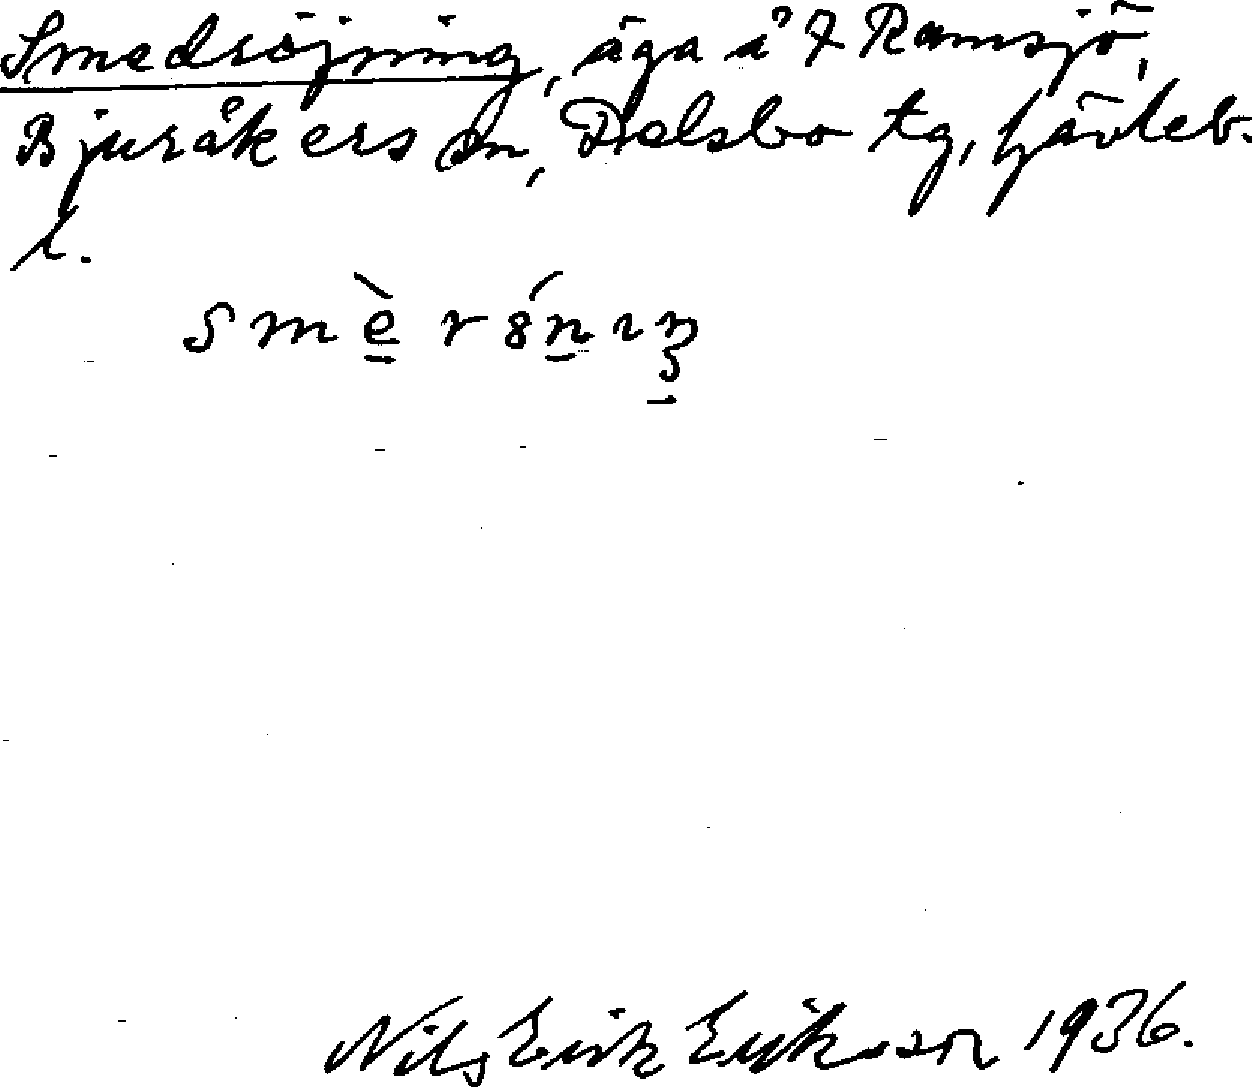 Smedröjning, äga å 7 Ramsjö,
Bjuråkers sn, Delsbo tg, Gävleb.
l.
Nils Erik Eriksson 1936.